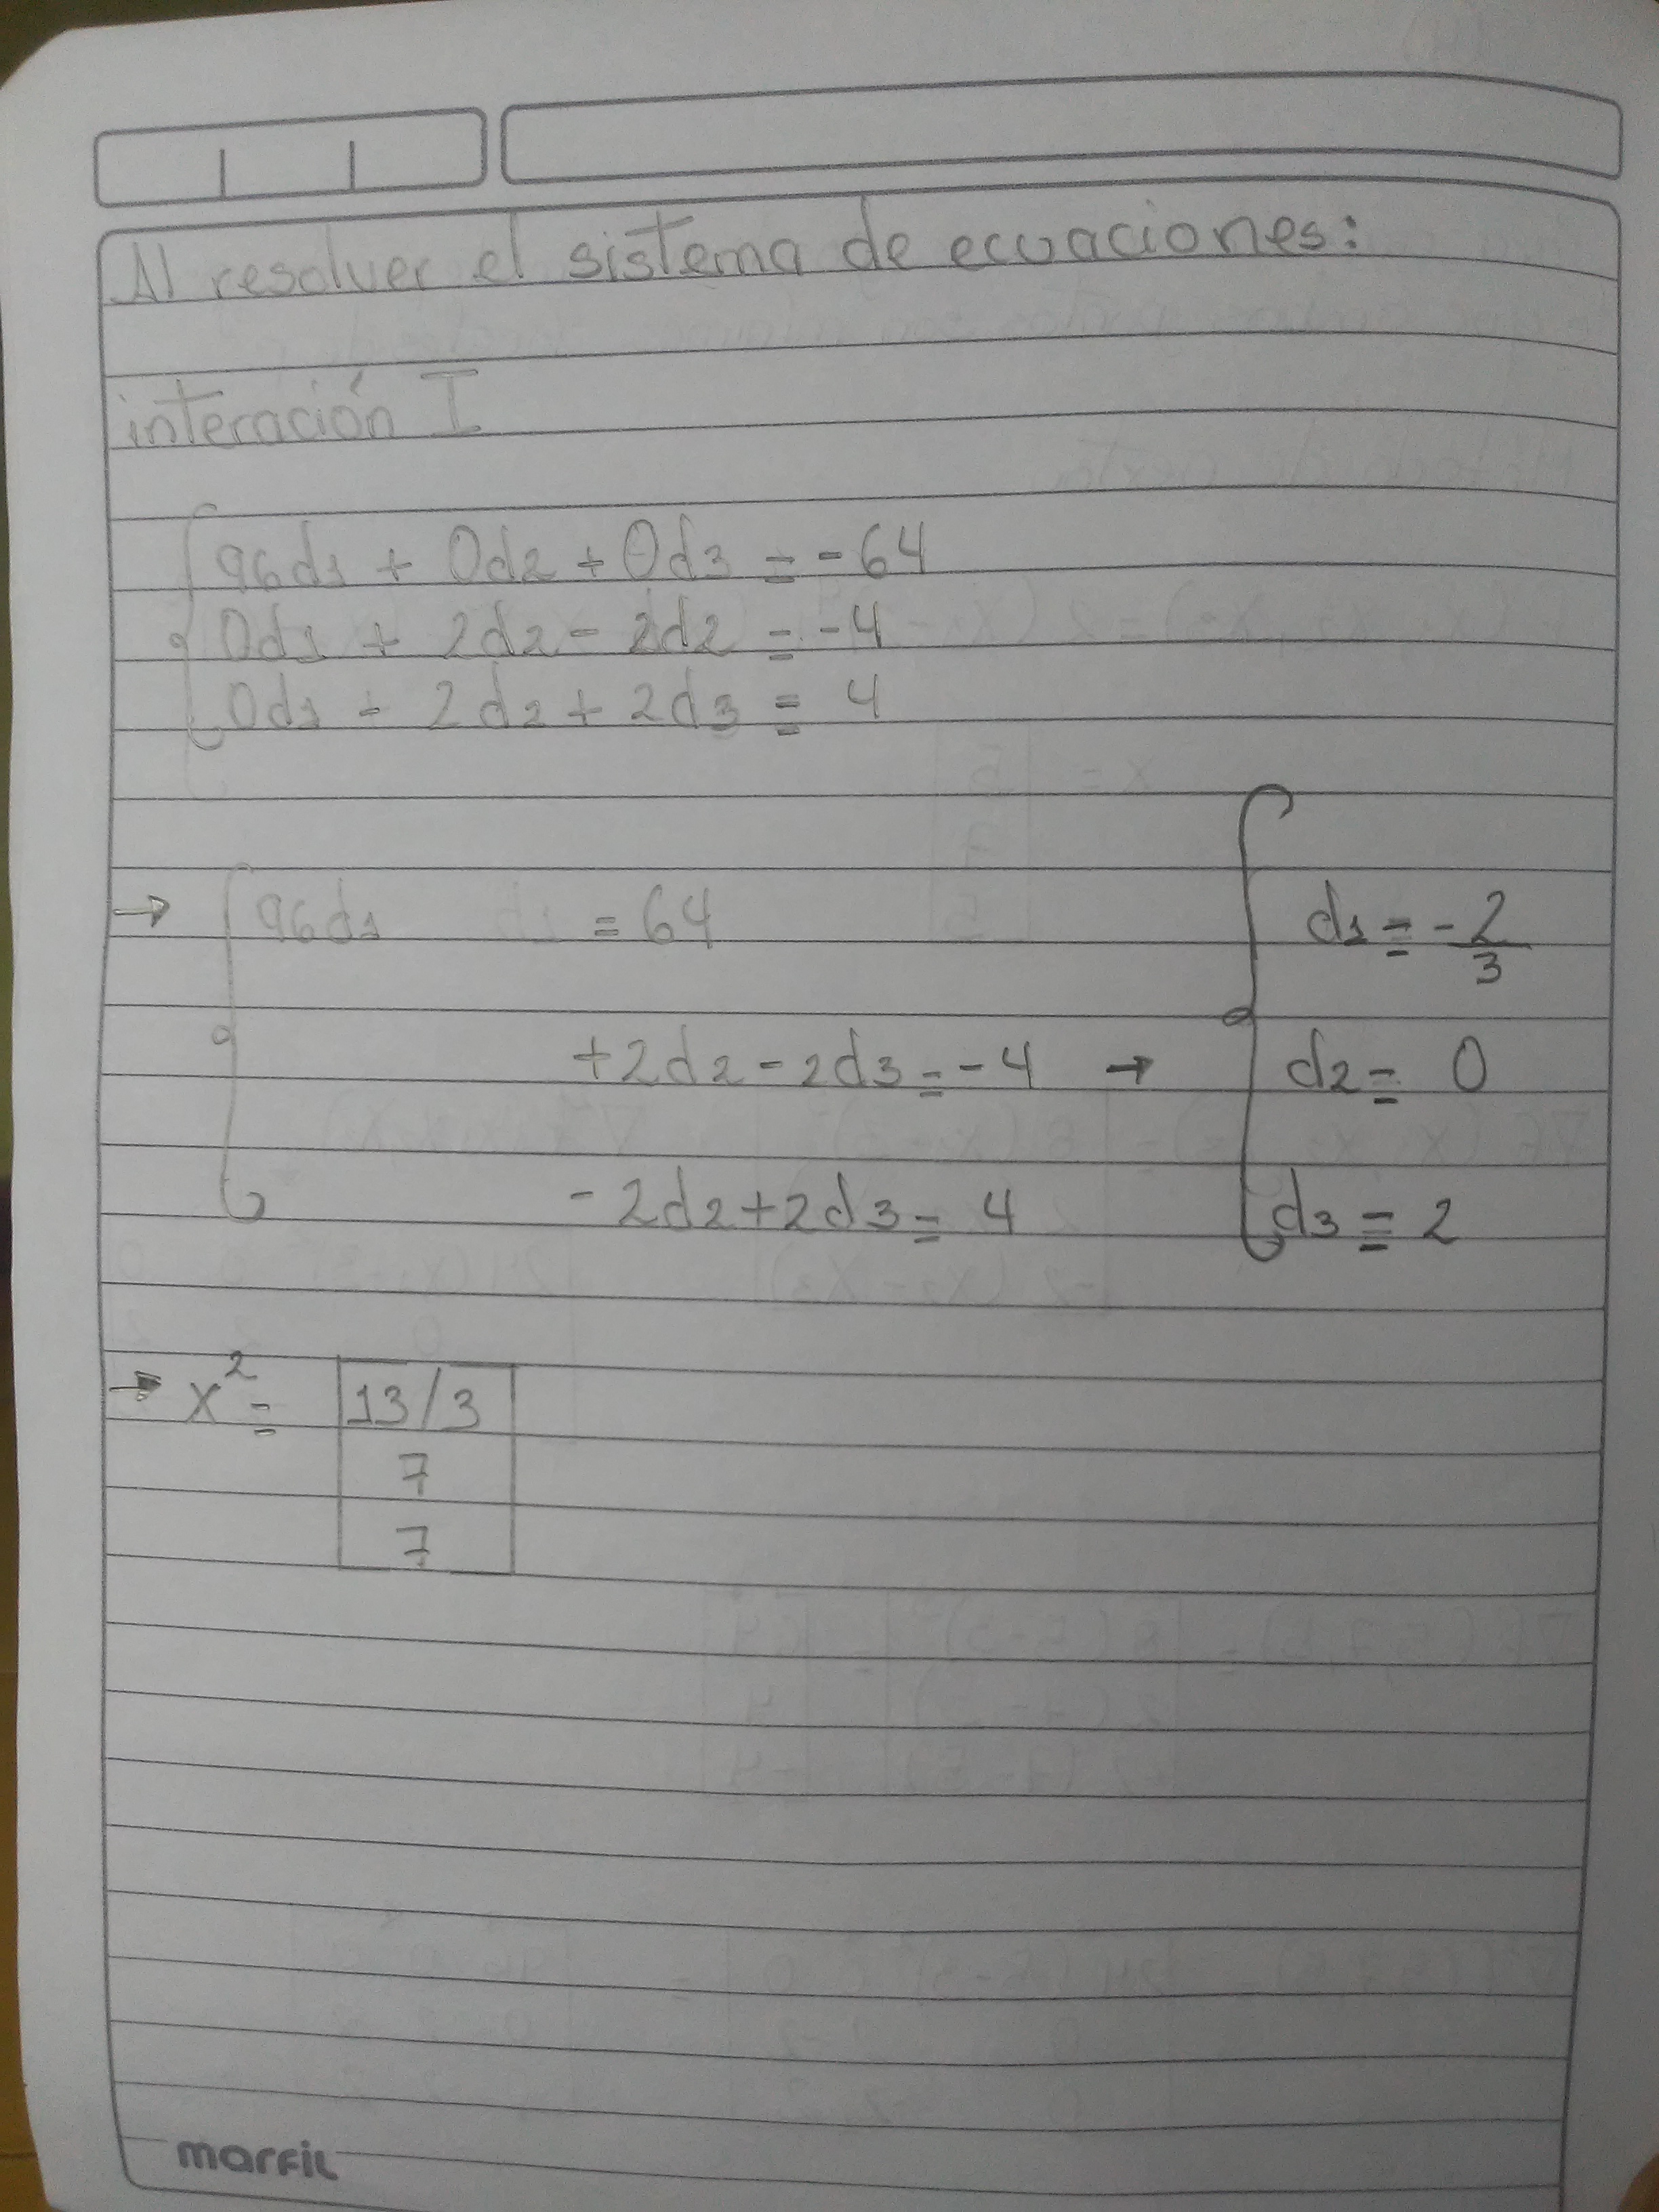 Al resolver el sistema de ecuaciones:
interación I
96d1 + 0d2 + 0d3 = -64
0d1 + 2d2 - 2d2 = -4
0d1 - 2d2 + 2d3 = 4
→ 96d1 = 64
d1 = -2/3
+2d2 - 2d3 = -4 → d2 = 0
-2d2 + 2d3 = 4
d3 = 2
→ x² = 13/3
7
7
marfil